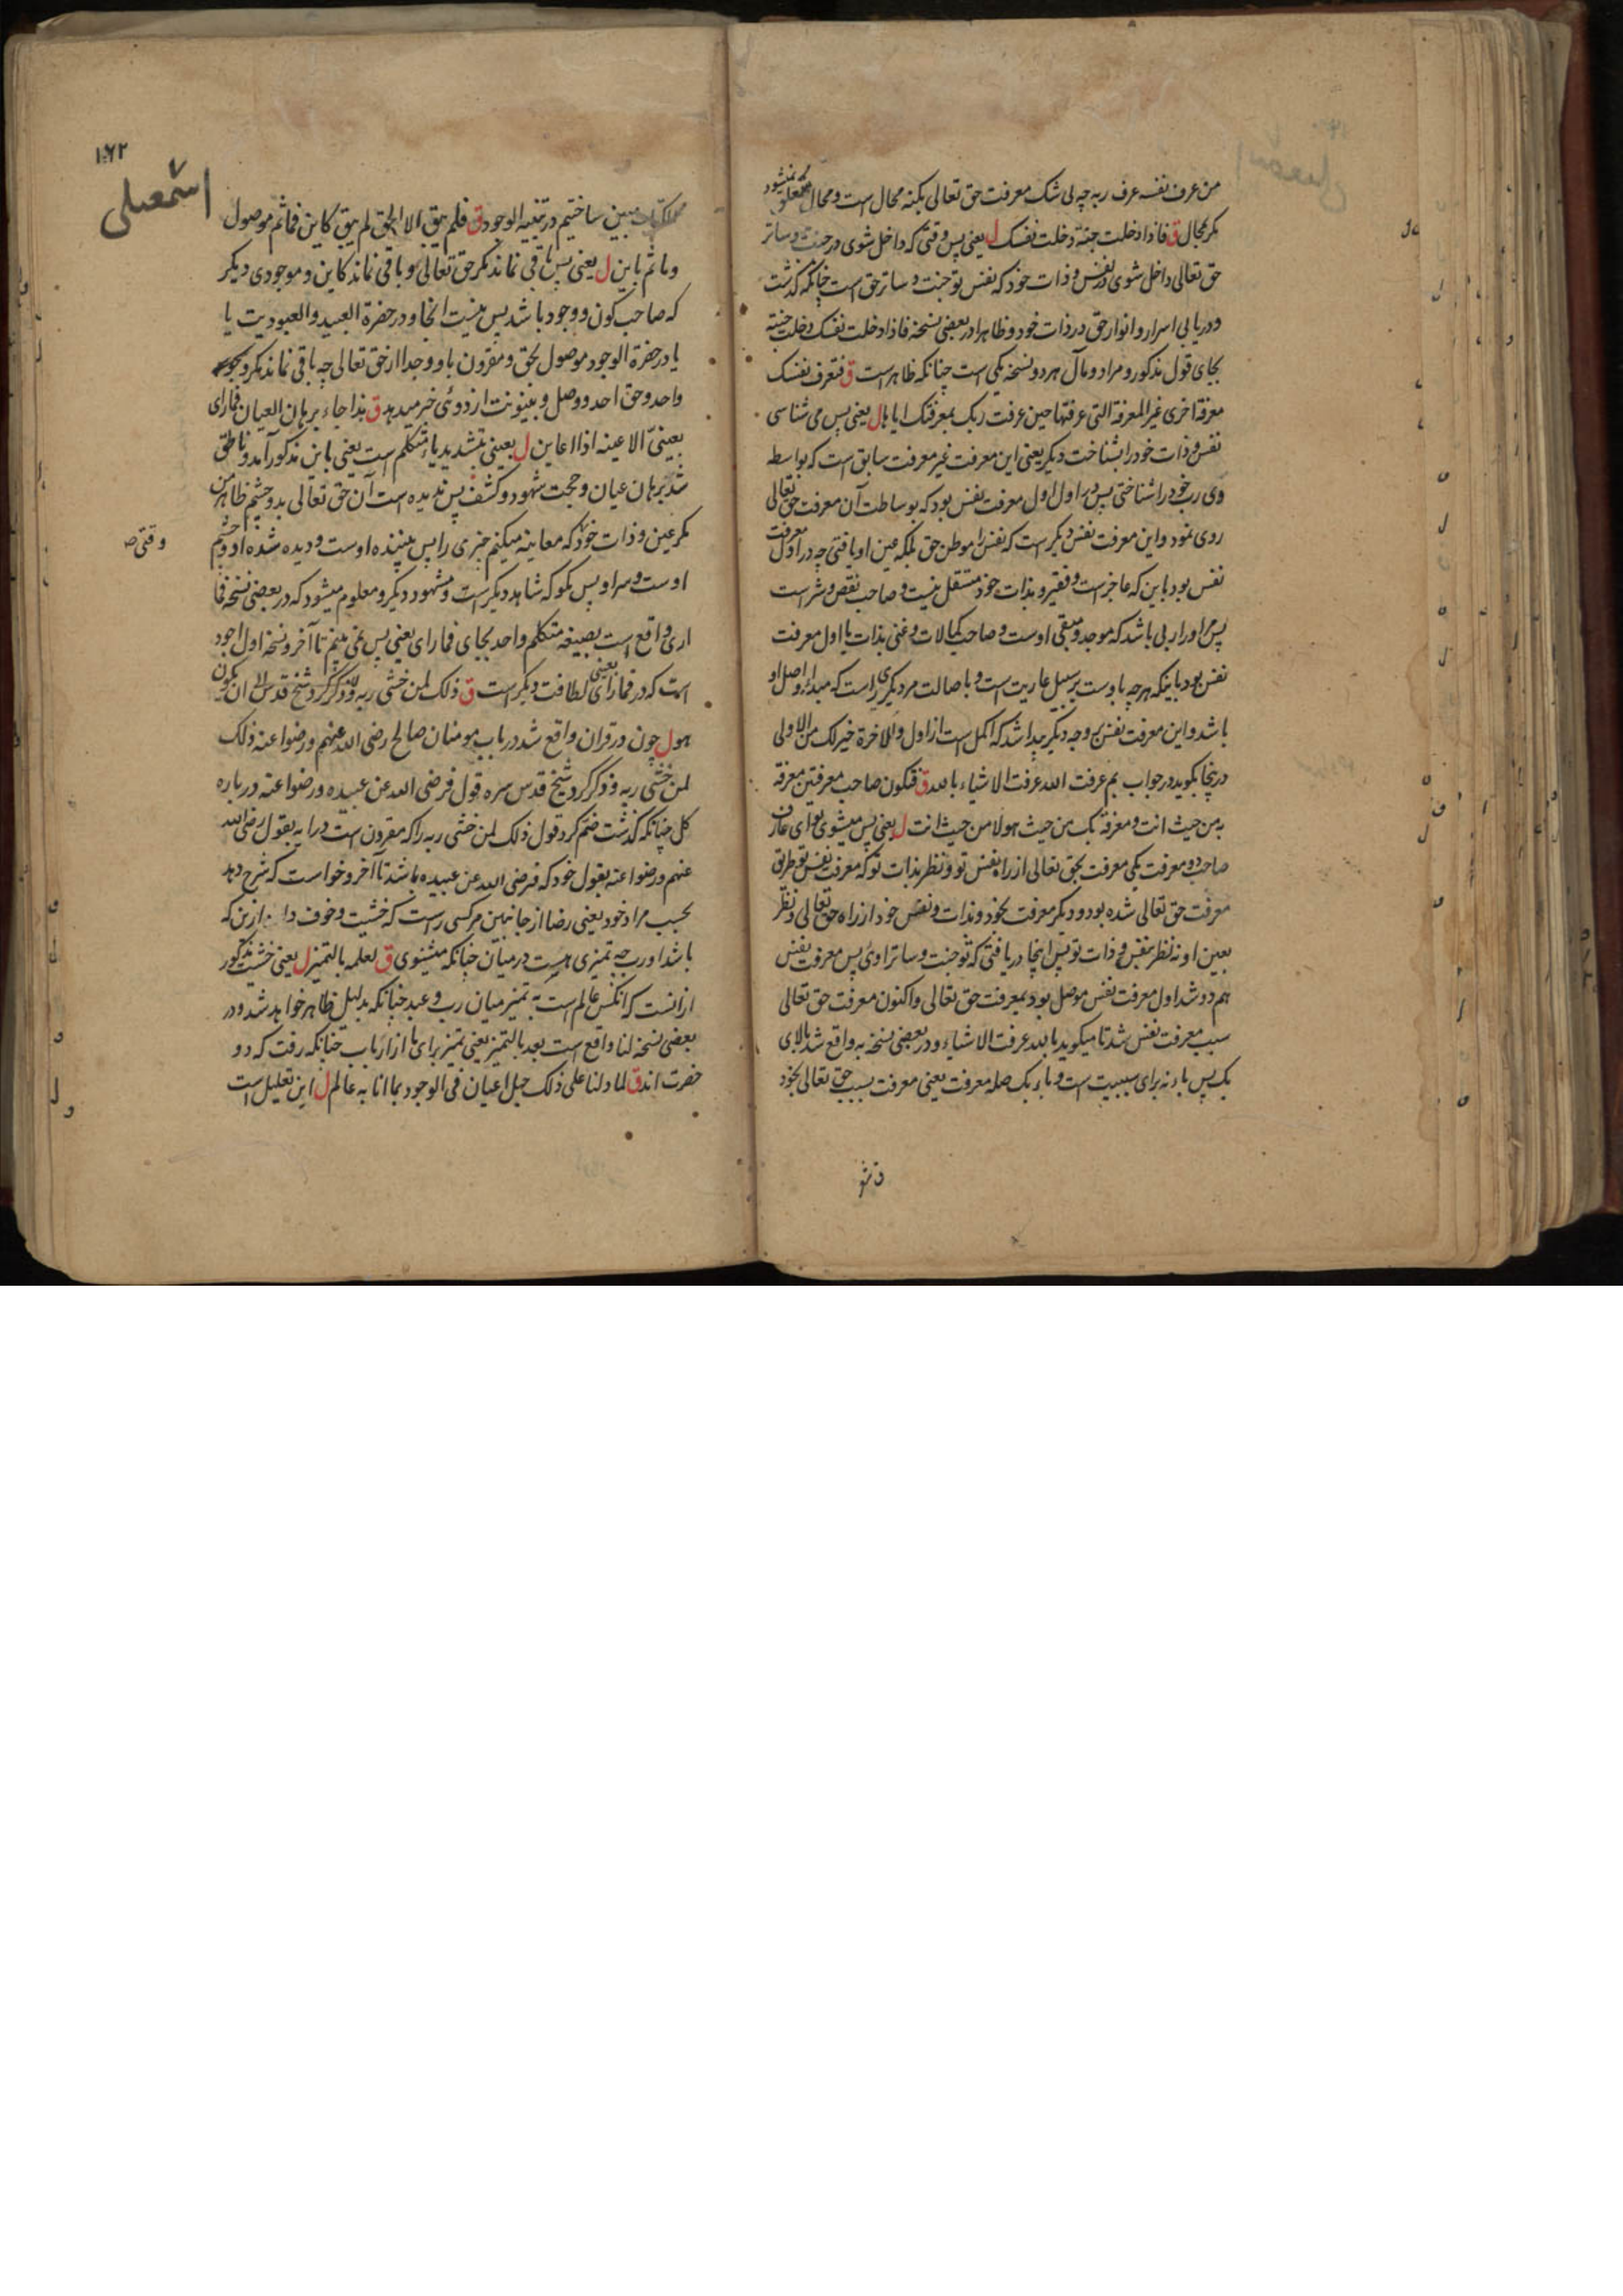 من عرف نفسه عرف ربه چه لی شک معرفت حق تعالی بکنه محال است و محال معلق نمیشود
مگر بمحال ق فاذا دخلت جنته دخلت نفسک ل یعنی پس وقتی که داخل شوی در جنت و ساتر
حق تعالی داخل شوی در نفس و ذات خود که نفس تو جنت و ساتر حق است چنانکه گذشت
و دریابی اسرار و انوار حق در ذات خود و ظاهرا در بعضی نسخه فاذا دخلت نفسک دخلت جنته
بجای قول مذکور و مراد و مآل هر دو نسخه یکی است چنانکه ظاهر است ق فتعرف نفسک
معرفة اخری غیر المعرفة التی عرفتها حین عرفت ربک بمعرفتک ایاها ل یعنی پس می شناسی
نفس و ذات خود را بشناخت دیگر یعنی این معرفت غیر معرفت سابق است که بواسطه
وی رب خود را شناختی پس در اول اول معرفت نفس بود که بوساطت آن معرفت حق تعالی
روی نمود و این معرفت نفس دیگر است که نفس را موطن حق بلکه عین او یافتی چه در اول معرفت
نفس بود باین که عاجز است و فقیر و بذات خود مستقل نیست و صاحب نقص و شر است
پس مر او را ربی باشد که موجد و مبقی اوست و صاحب کمالات و غنی بذات یا اول معرفت
نفس بود باینکه هرچه با وست بر سبیل عاریت است و باصالت مر دیگری راست که مبدا و اصل او
باشد و این معرفت نفس بوجه دیگر پیدا شد که اکمل است از اول والاخرة خیر لک من الاولی
درینجا بگوید در جواب بم عرفت الله عرفت الاشیاء بالله ق فتکون صاحب معرفتین معرفة
به من حیث انت و معرفة بک من حیث هو لا من حیث انت ل یعنی پس میشوی تو ای عارف
صاحب دو معرفت یکی معرفت بحق تعالی از راه نفس تو و نظر بذات تو که معرفت نفس تو طریق
معرفت حق تعالی شده بود و دیگر معرفت بخود و بذات و نفس خود از راه حق تعالی و نظر
بعین او نه نظر بنفس و ذات تو پس اینجا دریافتی که تو جنت و ساتر اوئ پس معرفت نفس
هم دو شد اول معرفت نفس موصل بود بمعرفت حق تعالی و اکنون معرفت حق تعالی
سبب معرفت نفس شد تا میگوید بالله عرفت الاشیاء و در بعضی نسخه به واقع شد بالای
بک پس باء به برای سببیت است و باء بک صله معرفت یعنی معرفت بسبب حق تعالی بخود
۱۶۲
اسمعیلی
مبین ساختیم در تنبیه الوجود ق فلم یبق الا الحق لم یبق کاین فما ثم موصول
وما ثم باین ل یعنی پس باقی نماند مگر حق تعالی و باقی نماند کاین و موجودی دیگر
که صاحب کون و وجود باشد پس نیست انجا و در حضرة العبید و العبودیت یا
یا در حضرة الوجود موصول بحق و مقرون باو و جدا از حق تعالی چه باقی نماند مگر وجود
واحد و حق احد و وصل و بینونت از دوئی خبر میدهد ق بذا جاء برهان العیان فما اری
بعینیّ الا عینه اذ اعاین ل بعینی بتشدید یاء متکلم است یعنی باین مذکور آمد و ناطق
شد برهان عیان و حجت شهود و کشف پس ندیده است آن حق تعالی بدو چشم ظاهر من
مگر عین و ذات خود که معاینه میکنم چیزی را پس بیننده اوست و دیده شده او و چشم
وقتی صه
اوست و سر او پس مگو که شاهد دیگر است و مشهود دیگر و معلوم میشود که در بعضی نسخه فما
اری واقع است بصیغه متکلم واحد بجای فما رای یعنی پس نمی بینم تا آخر و نسخه اول اجود
است که در فما رای یعنی لطافت دیگر است ق ذلک لمن خشی ربه ان یکون
هو ل چون در قران واقع شد در باب مومنان صالح رضی الله عنهم و رضوا عنه ذلک
لمن خشی ربه و ذکر کرد شیخ قدس سره قول فرضی الله عن عبیده و رضوا عنه در باره
کل چنانکه گذشت ضم کرد قول ذلک لمن خشی ربه را که مقرون است در آیه بقول رضی الله
عنهم و رضوا عنه بقول خود که فرضی الله عن عبیده باشد تا آخر و خواست که شرح دهد
بحسب مراد خود یعنی رضا از جانبین مر کسی راست که خشیت و خوف دارد ازین که
باشد او رب چه تمیزی هست در میان چنانکه میشنوی ق لعلمه بالتمیز ل یعنی خشیت مذکور
ازانست که انکس عالم است به تمیز میان رب و عبد چنانکه بدلیل ظاهر خواهد شد و در
بعضی نسخه لنا واقع است بعد بالتمیز یعنی تمیز برای ما از ارباب چنانکه رفت که دو
حضرت اند ق لما دلنا علی ذلک جهل اعیان فی الوجود بما اتی به عالم ل این تعلیل است